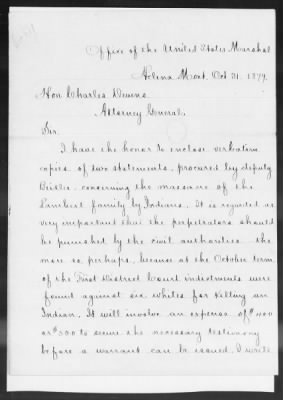 Office of the United States Marshal
Helena Mont. Oct 31. 1879.
Hon Charles Devens
Attorney General.
Sir.
I have the honor to enclose verbatim
copies of two statements, procured by deputy
concerning the massacre of the
Lambert family by Indians. It is regarded as
very important that the perpetrators should
be punished by the civil authorities the
more so perhaps, because at the October term
of the First District Court, indictments were
found against six whites for killing an
Indian. It will involve an expense of $400
or $500 to secure the necessary testimony
before a warrant can be issued. I write